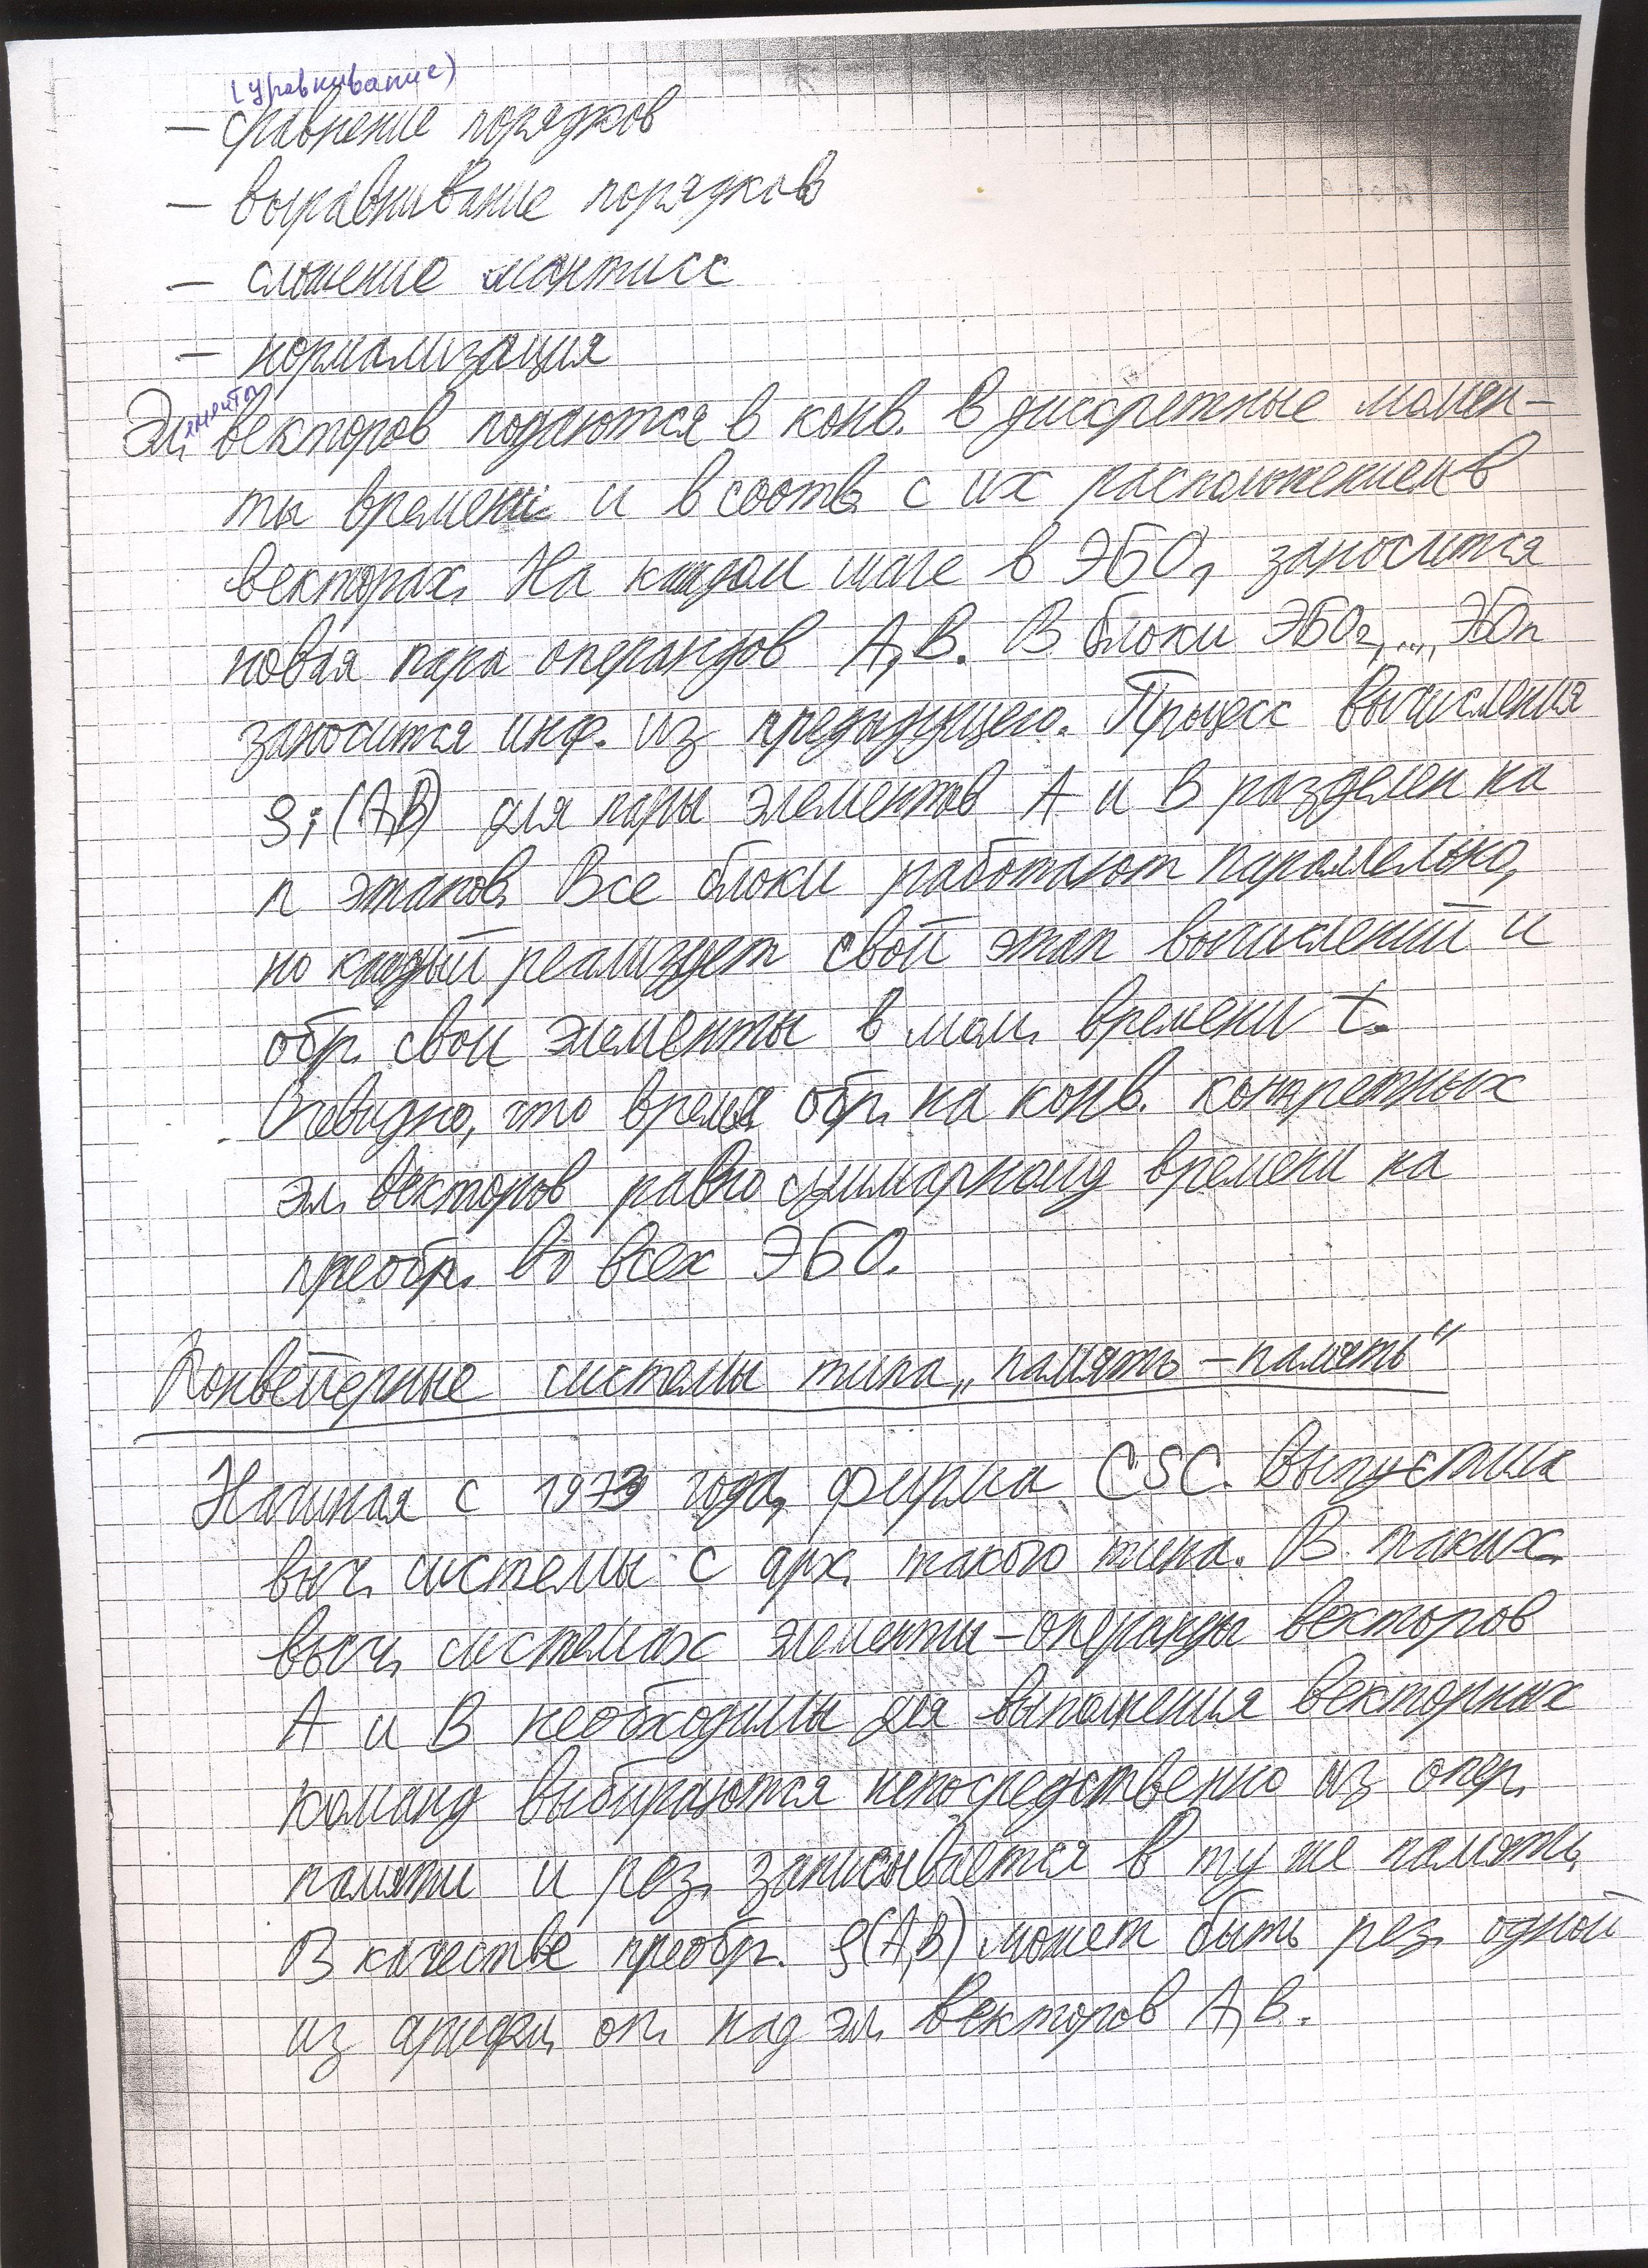 (уравнивание)
— сравнение порядков
— выравнивание порядков
— сложение мантисс
— нормализация
Элементы векторов подаются в конв. в дискретные момен-
ты времени и в соотв. с их расположением в
векторах. На каждом шаге в ЭБО1 заносится
новая пара операндов A,B. В блоки ЭБО2,...,ЭБОn
заносится инф. из предыдущего. Процесс вычисления
(A,B) для пары элементов A и B разделен на
n этапов. Все блоки работают параллельно,
но каждый реализует свой этап вычислений и
обр. свои элементы в мом. времени t.
Очевидно, что время обр. на конв. конкретных
эл. векторов равно суммарному времени на
преобр. во всех ЭБО.
Конвейерные системы типа „память – память"
Начиная с 1973 года, фирма CSC выпустила
выч. системы с арх. такого типа. В таких
выч. системах элементы-операнды векторов
A и B необходимы для выполнения векторных
команд выбираются непосредственно из опер.
памяти и рез. записывается в ту же память.
В качестве преобр. (A,B) может быть рез. одной
из арифм. оп. над эл. векторов A,B.